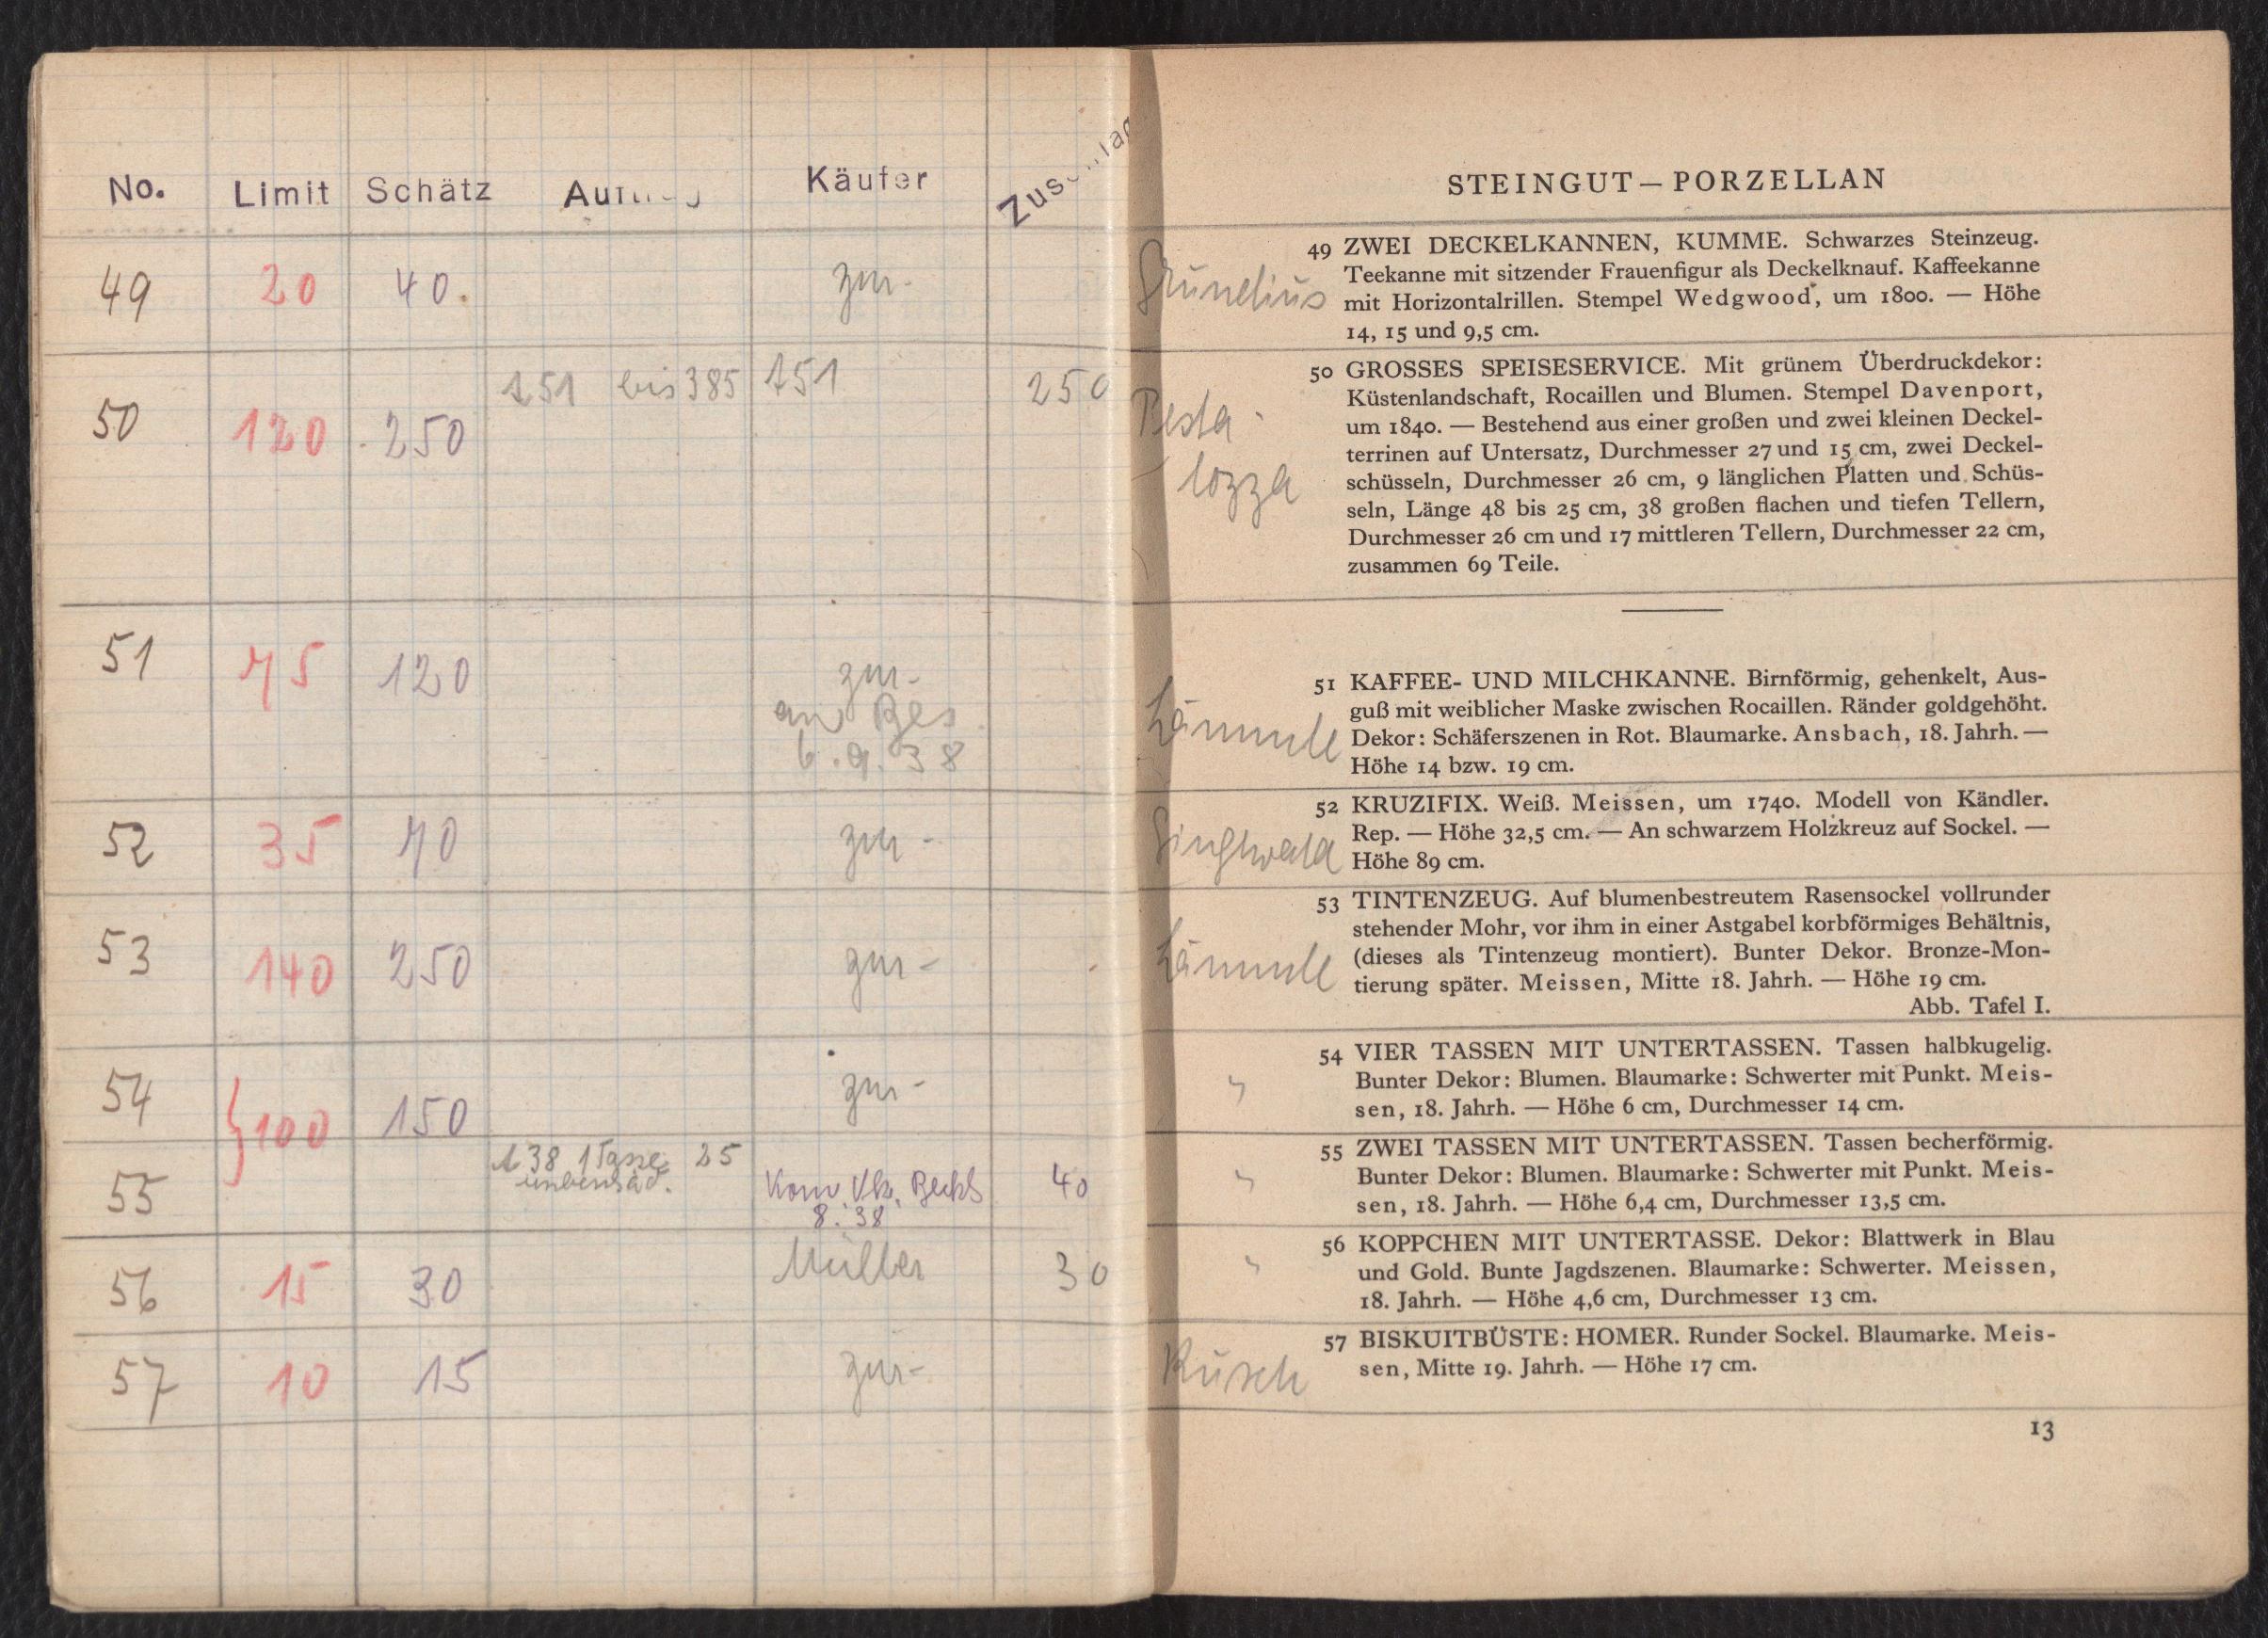 No. Limit Schätz Käufer
49 20 40. zur-
50 120 250 151 bis 385 151 250
51 75 120 zur-
an Bes.
6.9.38
52 35 70 zur-
53 140 250 zur-
54 } 100 150 zur-
55 38 1 Tasse 25 Kom. Vk. 40
8.38
56 15 30 Müller 30
57 10 15 zur-
STEINGUT — PORZELLAN
Grunelius
49 ZWEI DECKELKANNEN, KUMME. Schwarzes Steinzeug.
Teekanne mit sitzender Frauenfigur als Deckelknauf. Kaffeekanne
mit Horizontalrillen. Stempel Wedgwood, um 1800. — Höhe
14, 15 und 9,5 cm.
Pesta-
lozza
50 GROSSES SPEISESERVICE. Mit grünem Überdruckdekor:
Küstenlandschaft, Rocaillen und Blumen. Stempel Davenport,
um 1840. — Bestehend aus einer großen und zwei kleinen Deckel-
terrinen auf Untersatz, Durchmesser 27 und 15 cm, zwei Deckel-
schüsseln, Durchmesser 26 cm, 9 länglichen Platten und Schüs-
seln, Länge 48 bis 25 cm, 38 großen flachen und tiefen Tellern,
Durchmesser 26 cm und 17 mittleren Tellern, Durchmesser 22 cm,
zusammen 69 Teile.
Lämmle
51 KAFFEE- UND MILCHKANNE. Birnförmig, gehenkelt, Aus-
guß mit weiblicher Maske zwischen Rocaillen. Ränder goldgehöht.
Dekor: Schäferszenen in Rot. Blaumarke. Ansbach, 18. Jahrh. —
Höhe 14 bzw. 19 cm.
52 KRUZIFIX. Weiß. Meissen, um 1740. Modell von Kändler.
Rep. — Höhe 32,5 cm. — An schwarzem Holzkreuz auf Sockel. —
Höhe 89 cm.
Lämmle
53 TINTENZEUG. Auf blumenbestreutem Rasensockel vollrunder
stehender Mohr, vor ihm in einer Astgabel korbförmiges Behältnis,
(dieses als Tintenzeug montiert). Bunter Dekor. Bronze-Mon-
tierung später. Meissen, Mitte 18. Jahrh. — Höhe 19 cm.
Abb. Tafel I.
"
54 VIER TASSEN MIT UNTERTASSEN. Tassen halbkugelig.
Bunter Dekor: Blumen. Blaumarke: Schwerter mit Punkt. Meis-
sen, 18. Jahrh. — Höhe 6 cm, Durchmesser 14 cm.
"
55 ZWEI TASSEN MIT UNTERTASSEN. Tassen becherförmig.
Bunter Dekor: Blumen. Blaumarke: Schwerter mit Punkt. Meis-
sen, 18. Jahrh. — Höhe 6,4 cm, Durchmesser 13,5 cm.
"
56 KOPPCHEN MIT UNTERTASSE. Dekor: Blattwerk in Blau
und Gold. Bunte Jagdszenen. Blaumarke: Schwerter. Meissen,
18. Jahrh. — Höhe 4,6 cm, Durchmesser 13 cm.
Rusch
57 BISKUITBÜSTE: HOMER. Runder Sockel. Blaumarke. Meis-
sen, Mitte 19. Jahrh. — Höhe 17 cm.
13